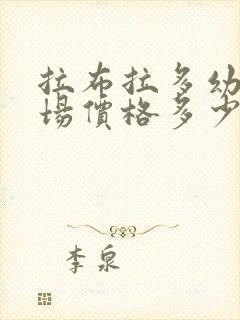 拉布拉多幼
場價格多少
李泉